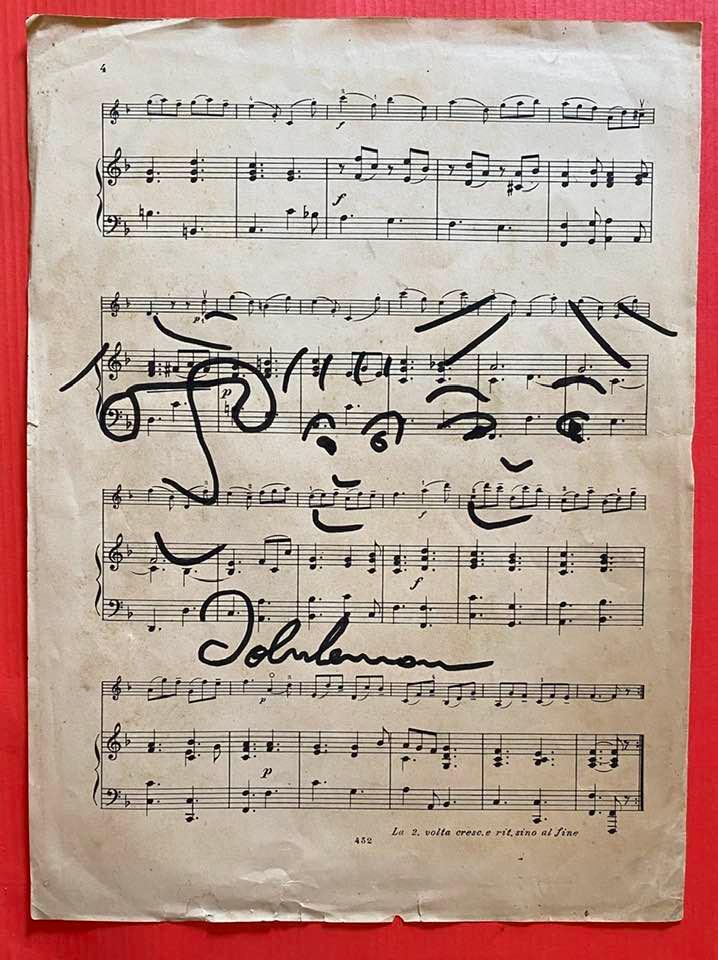 4
f
f
p
p
f
f
John Lennon
p
p
La 2. volta cresc. e rit. sino al fine
452